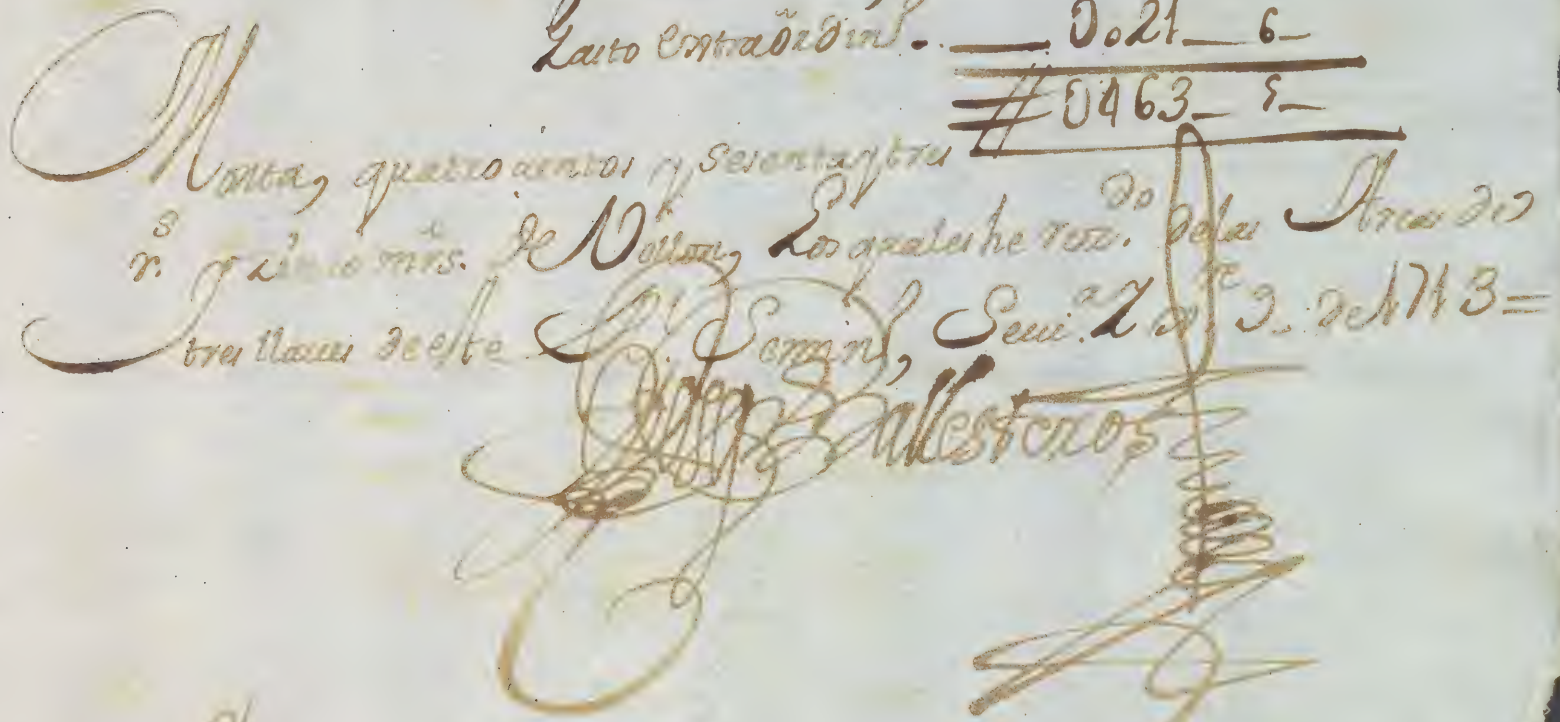 Gasto extraordin.º — 0021 — 6 —
# 0463 — 5 —
Monta, quatrocientos y sesenta y tres
r.s y mrs. de Vellon, Los quales he rez.do de las Arcas de
tres llaues de este Semin.o, Seui.a 2 de 1713 =
Ballesteros